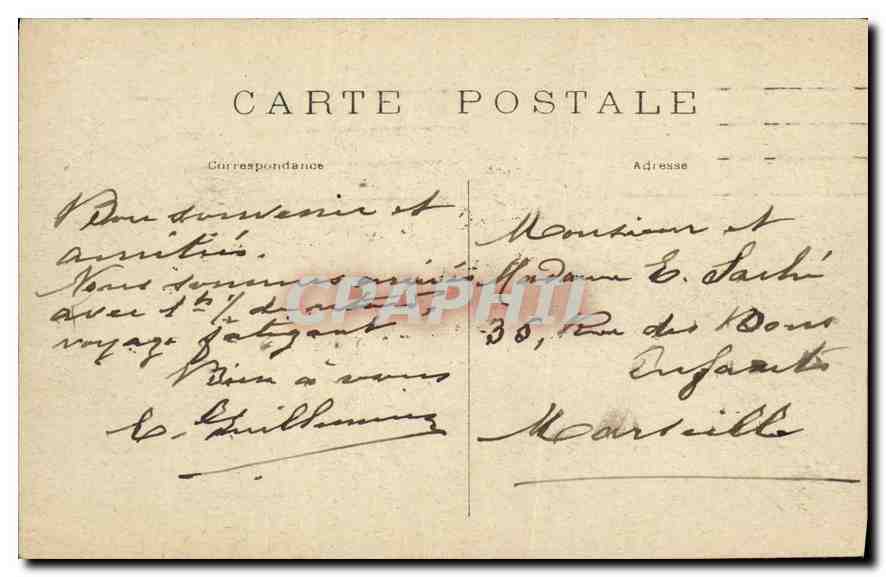 CARTE POSTALE
Correspondance
Adresse
Bon souvenir et
amitiés.
Nous sommes arrivés
avec 1h 1/2 de retard,
voyage fatigant
Bien à vous
E. Guillemin
Monsieur et
Madame E.
35, Rue des Bons
Enfants
Marseille
CPAPHIL